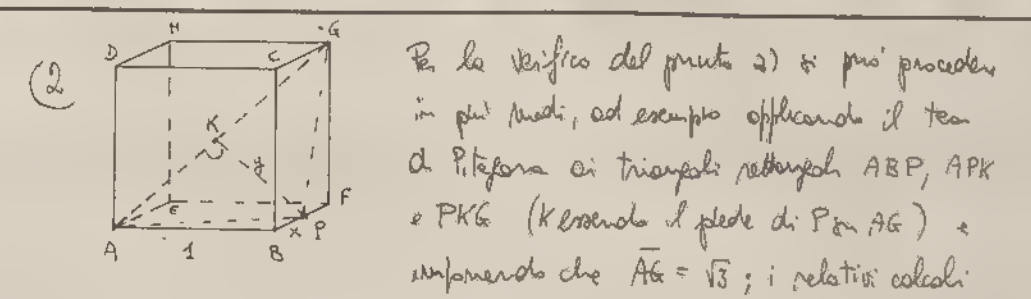 (2
H
G
D
C
K
y
E
F
x P
A
1
B
Per la verifica del punto 2) si può procedere
in più modi, ad esempio applicando il teor
di Pitagora ai triangoli rettangoli ABP, APK
e PKG (K essendo il piede di P su AG) e
imponendo che AG = √3 ; i relativi calcoli